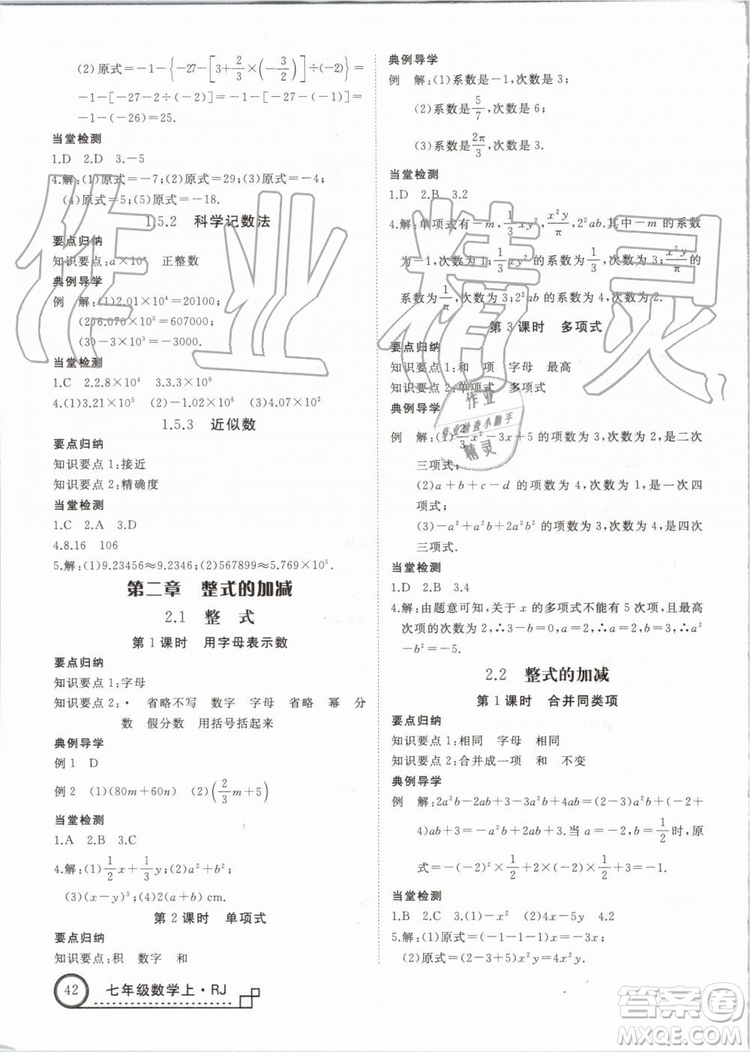 (2)原式=-1-{-27-[3+2/3×(-3/2)]÷(-2)}=
-1-[-27-2÷(-2)]=-1-[-27-(-1)]=
-1-(-26)=25.
当堂检测
1.D 2.D 3.-5
4.解:(1)原式=-7;(2)原式=29;(3)原式=-1;
(4)原式=5;(5)原式=-18.
1.5.2 科学记数法
要点归纳
知识要点:a×10ⁿ 正整数
典例导学
例 解:(1)2.01×10⁴=20100;
(2)6.070×10⁵=607000;
(3)-3×10³=-3000.
当堂检测
1.C 2.2.8×10⁴ 3.3.3×10⁹
4.(1)3.21×10⁵;(2)-1.21×10⁷.
1.5.3 近似数
要点归纳
知识要点1:接近
知识要点2:精确度
当堂检测
1.C 2.A 3.D
4.8.16 106
5.解:(1)9.23456≈9.2346;(2)567899≈5.769×10⁵.
第二章 整式的加减
2.1 整 式
第1课时 用字母表示数
要点归纳
知识要点1:字母
知识要点2:· 省略不写 数字 字母 省略 幂 分
数 假分数 用括号括起来
典例导学
例1 D
例2 (1)(80m+60n) (2)(2/3m)
当堂检测
1.A 2.B 3.C
4.解:(1)1/2x+1/3y;(2)a²+b²;
(3)(x-y)³;(4)2(a+b) cm.
第2课时 单项式
要点归纳
知识要点:积 数字 和
42 七年级数学上·RJ
典例导学
例 解:(1)系数是-1,次数是3;
(2)系数是5/7,次数是6;
(3)系数是2π/3,次数是3.
当堂检测
1.D 2.B 3.2
4.解:单项式有-m,1/3xy²,x²y/π,2²ab.系数与次数
为=1,1;
系数为 ,次数为3;2²ab的系数为4,次数为2.
第3课时 多项式
要点归纳
知识要点1:和 项 字母 最高
知识要点2:单项式 多项式
典例导学
例 解:(1)2/3x²-3x+5的项数为3,次数为2,是二次
三项式;
(2)a+b+c-d的项数为4,次数为1,是一次四项
式;
(3)-a²+a²b+2a²b²的项数为3,次数为4,是四次
三项式.
当堂检测
1.D 2.B 3.4
4.解:由题意可知,关于x的多项式不能有5次项,最高
次项的次数为4,所以3-b=0,a-1=4.所以
a=5,b=3.所以a-b=5-3=2.
2.2 整式的加减
第1课时 合并同类项
要点归纳
知识要点1:相同 字母 相同
知识要点2:合并成一项 和 不变
典例导学
例 解:2a²b-2ab+3-3a²b+4ab=(2-3)a²b+(-2
+4)ab+3=-a²b+2ab+3.当a=-2,b=1/2时,原
式=-2-2+3=-1.
当堂检测
1.B 2.C 3.(1)-x² (2)4x-5y 4.2
5.解:(1)原式=(2-3+5)x²=4x²;
作业精灵
作业
作业检查小助手
精灵
答案圈
MXQE.COM